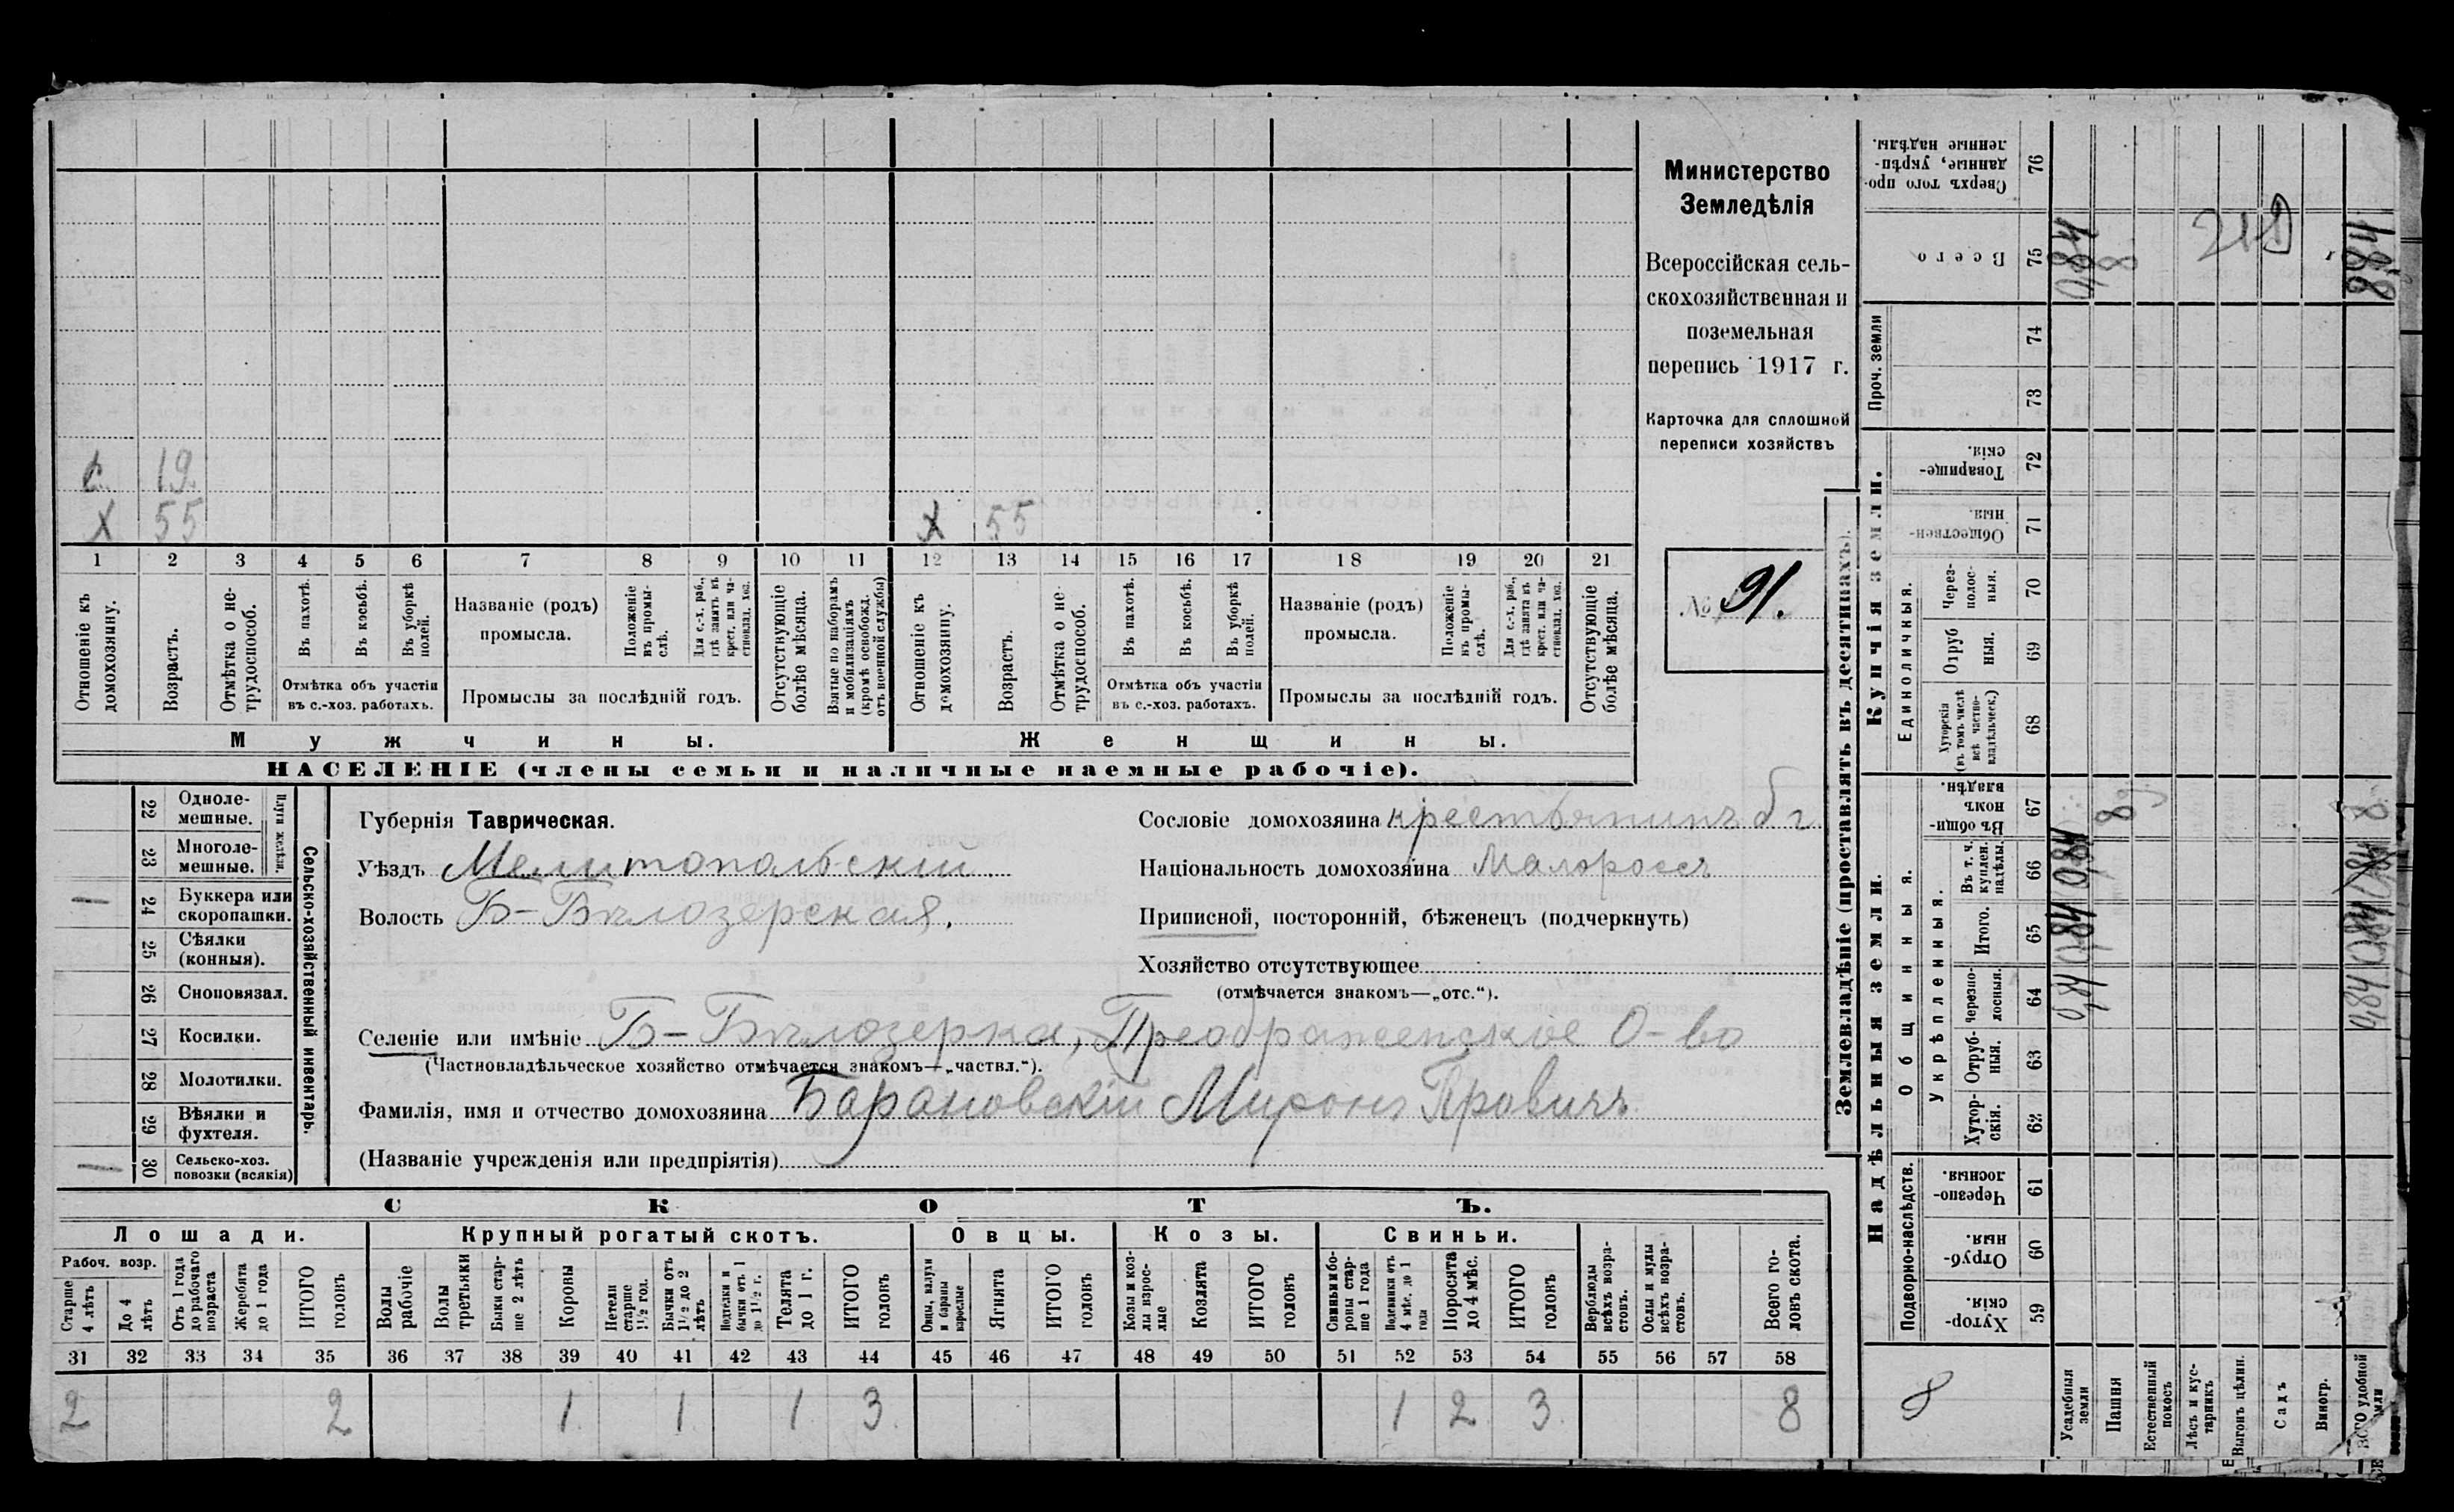 с. 19.
х 55 х 55
1 2 3 4 5 6 7 8 9 10 11 12 13 14 15 16 17 18 19 20 21
Отношеніе къ домохозяину.
Возрастъ.
Отмѣтка о не-трудоспособ.
Въ пахотѣ.
Въ косьбѣ.
Въ уборкѣ полей.
Отмѣтка объ участіи
въ с.-хоз. работахъ.
Названіе (родъ)
промысла.
Положеніе въ промы-слѣ.
Для с.-х. раб., гдѣ занятъ въ крест. или ча-стновлад. хоз.
Промыслы за послѣдній годъ.
Отсутствующіе болѣе мѣсяца.
Взятые по наборамъ и мобилизаціямъ (кромѣ освобожд. отъ военной службы)
Отношеніе къ домохозяину.
Возрастъ.
Отмѣтка о не-трудоспособ.
Въ пахотѣ.
Въ косьбѣ.
Въ уборкѣ полей.
Отмѣтка объ участіи
въ с.-хоз. работахъ.
Названіе (родъ)
промысла.
Положеніе въ промы-слѣ.
Для с.-х. раб., гдѣ занята въ крест. или ча-стновлад. хоз.
Промыслы за послѣдній годъ.
Отсутствующіе болѣе мѣсяца.
Мужчины.
Женщины.
НАСЕЛЕНІЕ (члены семьи и наличные наемные рабочіе).
Министерство
Земледѣлія
Всероссійская сель-
скохозяйственная и
поземельная
перепись 1917 г.
Карточка для сплошной
переписи хозяйствъ
№ 91.
22 Одноле-мешные.
23 Многоле-мешные.
Плуги желѣзн.
24 Буккера или скоропашки. 1
25 Сѣялки (конныя).
26 Сноповязал.
27 Косилки.
28 Молотилки.
29 Вѣялки и фухтеля.
30 Сельско-хоз. повозки (всякія) 1
Сельско-хозяйственный инвентарь.
Губернія Таврическая.
Уѣздъ Мелитопольскій.
Волость Б-Бѣлозерская.
Сословіе домохозяина крестьянинъ
Національность домохозяина Малороссъ
Приписной, посторонній, бѣженецъ (подчеркнуть)
Хозяйство отсутствующее
(отмѣчается знакомъ—„отс.“).
Селеніе или имѣніе Б-Бѣлозерка, Преображенское О-во
(Частновладѣльческое хозяйство отмѣчается знакомъ—„частвл.“).
Фамилія, имя и отчество домохозяина Барановскій Миронъ Провичъ
(Названіе учрежденія или предпріятія)
СКОТЪ.
Лошади. Крупный рогатый скотъ. Овцы. Козы. Свиньи.
Рабоч. возр.
Старше 4 лѣтъ
До 4 лѣтъ
Отъ 1 года до рабочаго возраста
Жеребята до 1 года
ИТОГО головъ
Волы рабочіе
Волы третьяки
Быки стар-ше 2 лѣтъ
Коровы
Нетели старше 1½ год.
Бычки отъ 1½ до 2 лѣтъ
Нетелки и бычки отъ 1 до 1½ г.
Телята до 1 г.
ИТОГО головъ
Овцы, валухи и бараны взрослые
Ягнята
ИТОГО головъ
Козы и коз-лы взрос-лые
Козлята
ИТОГО головъ
Свиньи и бо-ровы стар-ше 1 года
Подсвинки отъ 4 мѣс. до 1 года
Поросята до 4 мѣс.
ИТОГО головъ
Верблюды всѣхъ возра-стовъ.
Ослы и мулы всѣхъ возра-стовъ.
Всего го-ловъ скота.
31 32 33 34 35 36 37 38 39 40 41 42 43 44 45 46 47 48 49 50 51 52 53 54 55 56 57 58
2 2 1 1 1 3 1 2 3 8
Землевладѣніе (проставлять въ десятинахъ).
Надѣльныя земли.
Купчія земли.
Подворно-наслѣдств.
Общинныя.
Укрѣпленныя.
Единоличныя.
Проч. земли
Сверхъ того про-данные, укрѣп-ленные надѣлы. 76
Всего 75
74
73
Товарище-скія. 72
Обществен-ныя. 71
Через-полос-ныя. 70
Отруб ныя. 69
Хуторскія (въ томъ числѣ всѣ частно-владѣльческ.) 68
Въ общин-номъ владѣн. 67
Въ т. ч. куплен. надѣлы. 66
Итого. 65
Черезпо-лосныя. 64
Отруб-ныя. 63
Хутор-скія. 62
Черезпо-лосныя. 61
Отруб-ныя. 60
Хутор-скія. 59
8
Усадебныя земли
Пашня
Естественный покосъ
Лѣсъ и кус-тарникъ
Выгонъ цѣлин.
Садъ
Виногр.
0,84 0,84 0,84 0,84
8 8
8,84